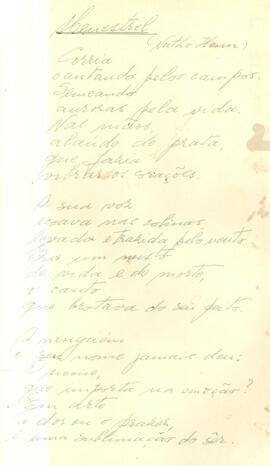 Menestrel
(Natho Henn)
Corria
cantando pelos campos.
Semeando
auroras pela vida.
Nas mãos,
alaúde de prata,
que fazia
vibrar os corações.
A sua voz
ecoava nas colinas,
levada e trazida pelo vento.
Era um misto
de vida e de morte,
o canto
que brotava do seu peito.
A ninguém
o seu nome jamais deu;
O nome,
que importa na emoção?
Em arte
a dor ou o prazer,
é uma sublimação do sêr.